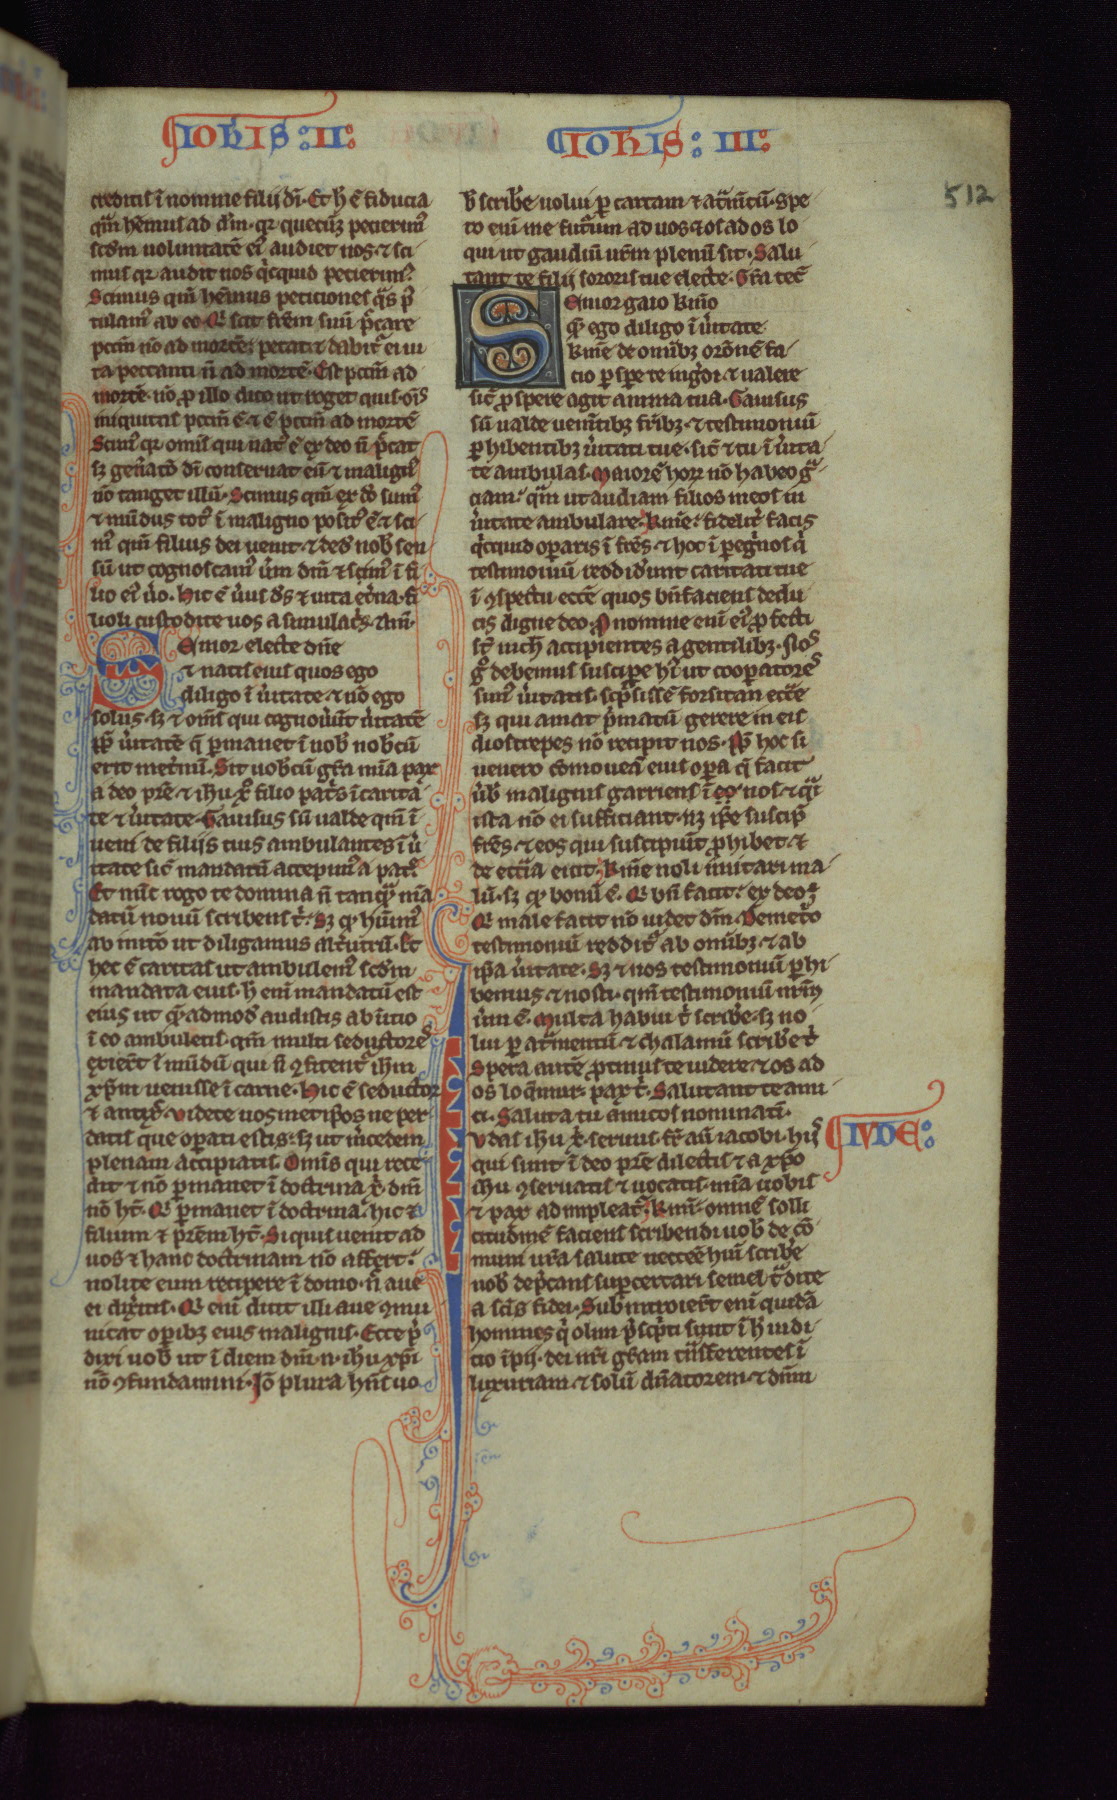 IOHIS : II :
IOHIS : III :
512
creditis ĩ nomine filij dĩ. Et h̃ ẽ fiducia
qm̃ hẽmus ad dm̃. qr quecũqꝫ petierim᷒
scdm voluntatẽ ei᷒ audiet nos. ⁊ sci
mus qr audit nos q̃cquid petierim᷒.
Scimus qm̃ hẽmus peticiones q̃s p̃
tulam᷒ ab eo. Q̃ scit frẽm suũ p̃care
pctm̃ nõ ad mortẽ: petat ⁊ dabit᷑ ei ui
ta peccanti ñ ad mortẽ. Est pctm̃ ad
mortẽ. nõ ꝓ illo dico ut roget quis. oĩs
iniquitas pctm̃ ẽ. ⁊ ẽ pctm̃ ad mortẽ
Scim᷒ qr omĩs qui nat᷒ ẽ ex deo ñ p̃cat
sꝫ gen̾atõ dĩ conseruat eũ ⁊ malign᷒
nõ tanget illũ. Scimus qm̃ ex dõ sum᷒
⁊ mũdus tot᷒ ĩ maligno posit᷒ ẽ ⁊ sci
m᷒ qm̃ filius dei uenit ⁊ ded̾ nob̾ sen
sũ ut cognoscam᷒ u̾m dm̃ ⁊ sim᷒ ĩ fi
lio ei᷒ u̾o. Hic ẽ u̾us ds̃ ⁊ uita et̾na. fi
lioli custodite uos a simulac̃s. Am̃.
Senior electe dñe
⁊ natis eius quos ego
diligo ĩ u̾itate ⁊ nõ ego
solus. sꝫ ⁊ om̃s qui cognou̾ũt u̾itatẽ
ꝓpt̾ u̾itatẽ q̃ ꝑmanet ĩ uob̾ nob̾cũ
erit met̾nũ. Sit uob̾cũ gr̃a mĩa pax
a deo pr̃e ⁊ ihũ xp̃ filio pat̃s ĩ carita
te ⁊ u̾itate. Gauisus sũ ualde qm̃ ĩ
ueni de filijs tuis ambulantes ĩ u̾
itate sic̃ mandatũ accepim᷒ a pat̃.
Et nũc rogo te domina ñ tanq̃ mã
datũ nouũ scribens t̾. sꝫ qͦ hũim᷒
ab initõ ut diligamus alt̾utrũ. Et
hec ẽ caritas ut ambulem᷒ scdm
mandata eius. h̃ enĩ mandatũ est
eius ut q̃ admod᷒ audistis ab ĩitio
ĩ eo ambuletis. qm̃ multi seductores
exier̃t ĩ mũdũ qui ñ ꝯfitent᷑ ihm̃
xp̃m uenisse ĩ carne. Hic ẽ seductor
⁊ antix᷒. Videte uosmetip̃os ne per
datis que oꝑati estis: sꝫ ut m̾cedem
plenam accipiatis. Omĩs qui rece
dit ⁊ nõ ꝑmanet ĩ doctrina x̃. dm̃
nõ ht̃. Q̃ ꝑmanet ĩ doctrina. hic ⁊
filium ⁊ pr̃em ht̃. Si quis uenit ad
uos ⁊ hanc doctrinam nõ affert:
nolite eum recipere ĩ domo. ñ aue
ei dix̾itis. Q̃ enĩ dicit illi aue ꝯmu
nicat oꝑibꝫ eius malignis. Ecce p̃
dixi uob̾ ut ĩ diem dm̃. n. ihu xp̃i
nõ ꝯfundamini. Iõ plura hñs uo
b̾ scribe̾. nolui ꝑ cartam ⁊ at̾m̃tũ. Spe
ro enĩ me futurum ad uos ⁊ os ad os lo
qui ut gaudiũ ur̃m plenũ sit. Salu
tant te filij sororis tue electe. Gr̃a tec̃
Senior gaio kmõ
q̃ ego diligo ĩ u̾itate.
kme̾ de omĩbꝫ orõnẽ fa
cio ꝓspe̾ te ingdi ⁊ ualere
sic̃ ꝓspere agit anima tua. Gauisus
sũ ualde uenĩtibꝫ fr̃ibꝫ. ⁊ testimoniũ
ꝑhibentibꝫ u̾itati tue. sic̃ ⁊ tu ĩ u̾ita
te ambulas. Maiorẽ horꝝ nõ habeo g̃
ciam. q̃m ut audiam filios meos in
u̾itate ambulare. kme̾: fidelit̾ facis
q̃cquid oꝑaris ĩ fr̃es. ⁊ hoc ĩ ꝑeg̃nos q̃
testimoniũ reddid̾unt caritati tue
ĩ ꝯspectu eccẽ quos bñ faciens dedu
cis digne deo. ꝓ nomine enĩ ei᷒ ꝓfecti
st̃ nich̾ accipientes a gentilibꝫ. Nos
g̊ debemus suscipe̾ h᷒i ut cooꝑatores
sim᷒ u̾itatis. sc̃psissẽ forsitan ecc̃e
sꝫ qui amat p̃matũ gerere in eis
diostrepes nõ recipit nos. ꝓpt̾ hoc si
uenero cõmoueã eius oꝑa q̃ facit
u̾b̾ malignis garriens ĩ nos. ⁊ q̃i
ista nõ ei sufficiant. nꝫ ip̃e suscip̃
fr̃es. ⁊ eos qui suscipiũt ꝓhibet. ⁊
de ecc̃ia eicit. kme̾ noli imitari ma
lũ. sꝫ qͦ bonũ ẽ. Q̃ bñ facit: ex deo ẽ
Q̃ male facit nõ uidet dm̃. Demet̃o
testimoniũ reddit᷑ ab omĩbꝫ. ⁊ ab
ip̃a u̾itate. Sꝫ ⁊ nos testimoniũ ꝑhi
bemus. ⁊ nosti. qm̃ testimoniũ nr̃m
u̾m ẽ. Multa habui t̾ scribe̾. sꝫ no
lui ꝑ at̾mentũ ⁊ chalamũ scribe̾ t̾
Spero autẽ ꝓtinus te uidere. ⁊ os ad
os loq̃mur. pax t̾. Salutant te ami
ci. Saluta tu amicos nominatĩ.
Iudas ihũ x̃. seruus. fr̃ aũ iacobi. hijs
IUDE :
qui sunt ĩ deo pr̃e dilectis ⁊ a xp̃o
ihu ꝯseruatis ⁊ uocatis. mĩa uobis
⁊ pax adimpleat᷑. kmĩ. omnẽ solli
citudinẽ faciens scribendi uob̾ de cõ
muni ur̃a salute necceẽ hũi scribe̾
uob̾ dep̾cans suꝑcertari semel t̃dite
a sc̃is fidei. Subintroier̃t enĩ quidã
homines q̃ olim p̃sc̃pti sunt ĩ h̾ iudi
cio ĩpij. dei nr̃i gr̃am t̃nsferentes ĩ
luxuriam. ⁊ solũ dñatorem. ⁊ dnm̃